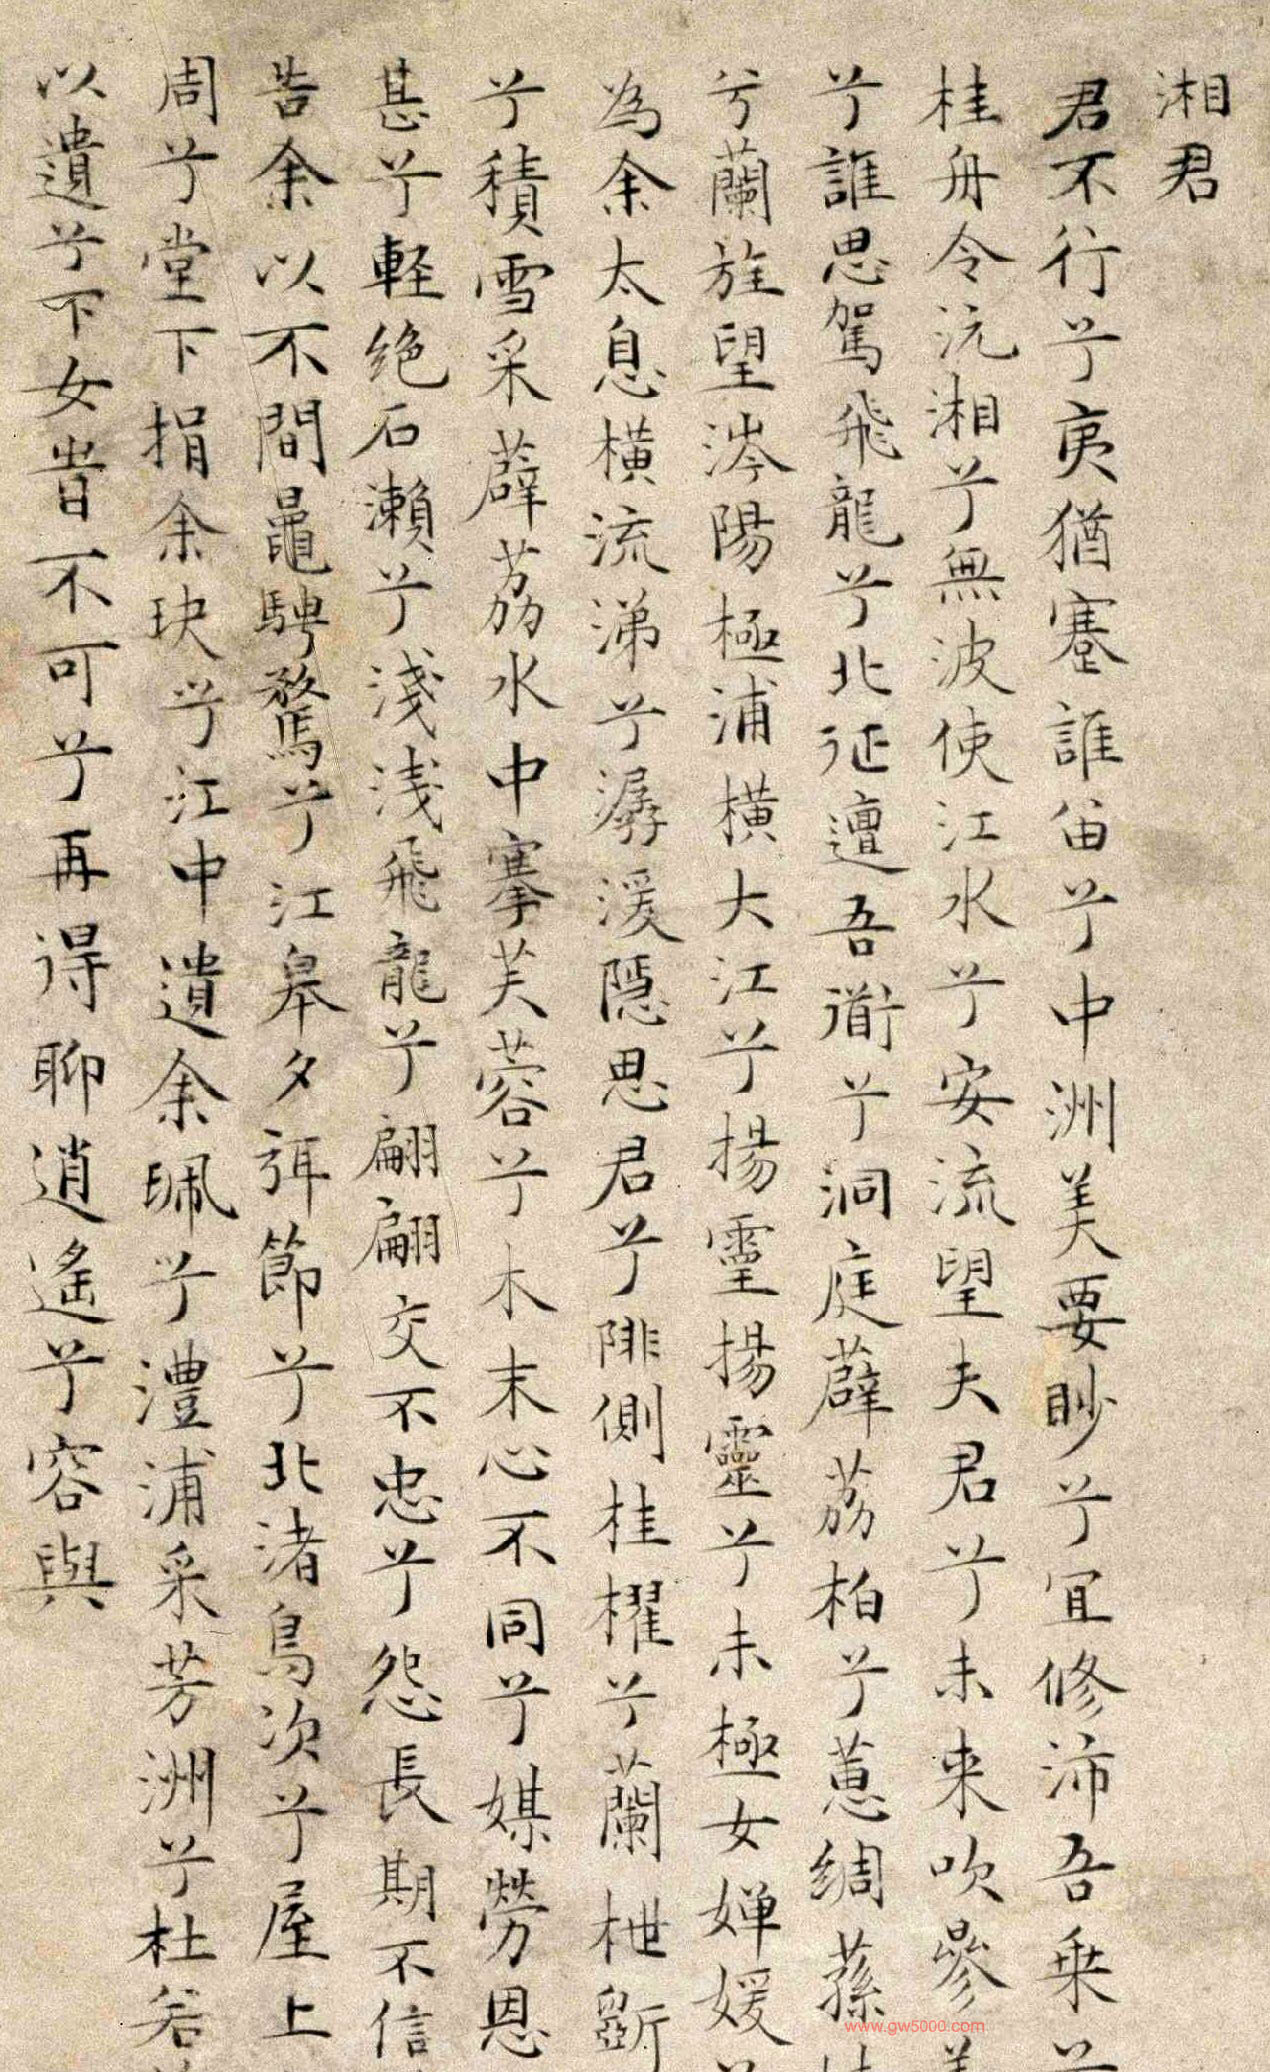 湘君
君不行兮夷猶蹇誰留兮中洲美要眇兮宜修沛吾乗兮
桂舟令沅湘兮無波使江水兮安流望夫君兮未来吹參
兮誰思駕飛龍兮北征邅吾衟兮洞庭薜荔柏兮蕙綢蓀
兮蘭旌望涔陽極浦橫大江兮揚靈揚靈兮未極女嬋媛
為余太息橫流涕兮潺湲隱思君兮陫側桂櫂兮蘭枻斵
兮積雪采薜荔水中搴芙蓉兮木末心不同兮媒勞恩
甚兮軽絶石瀬兮淺淺飛龍兮翩翩交不忠兮怨長期不信
告余以不間鼂騁騖兮江皋夕弭節兮北渚鳥次兮屋上
周兮堂下捐余玦兮江中遺余珮兮澧浦采芳洲兮杜若
以遺兮下女旹不可兮再得聊逍遙兮容與
www.gw5000.com